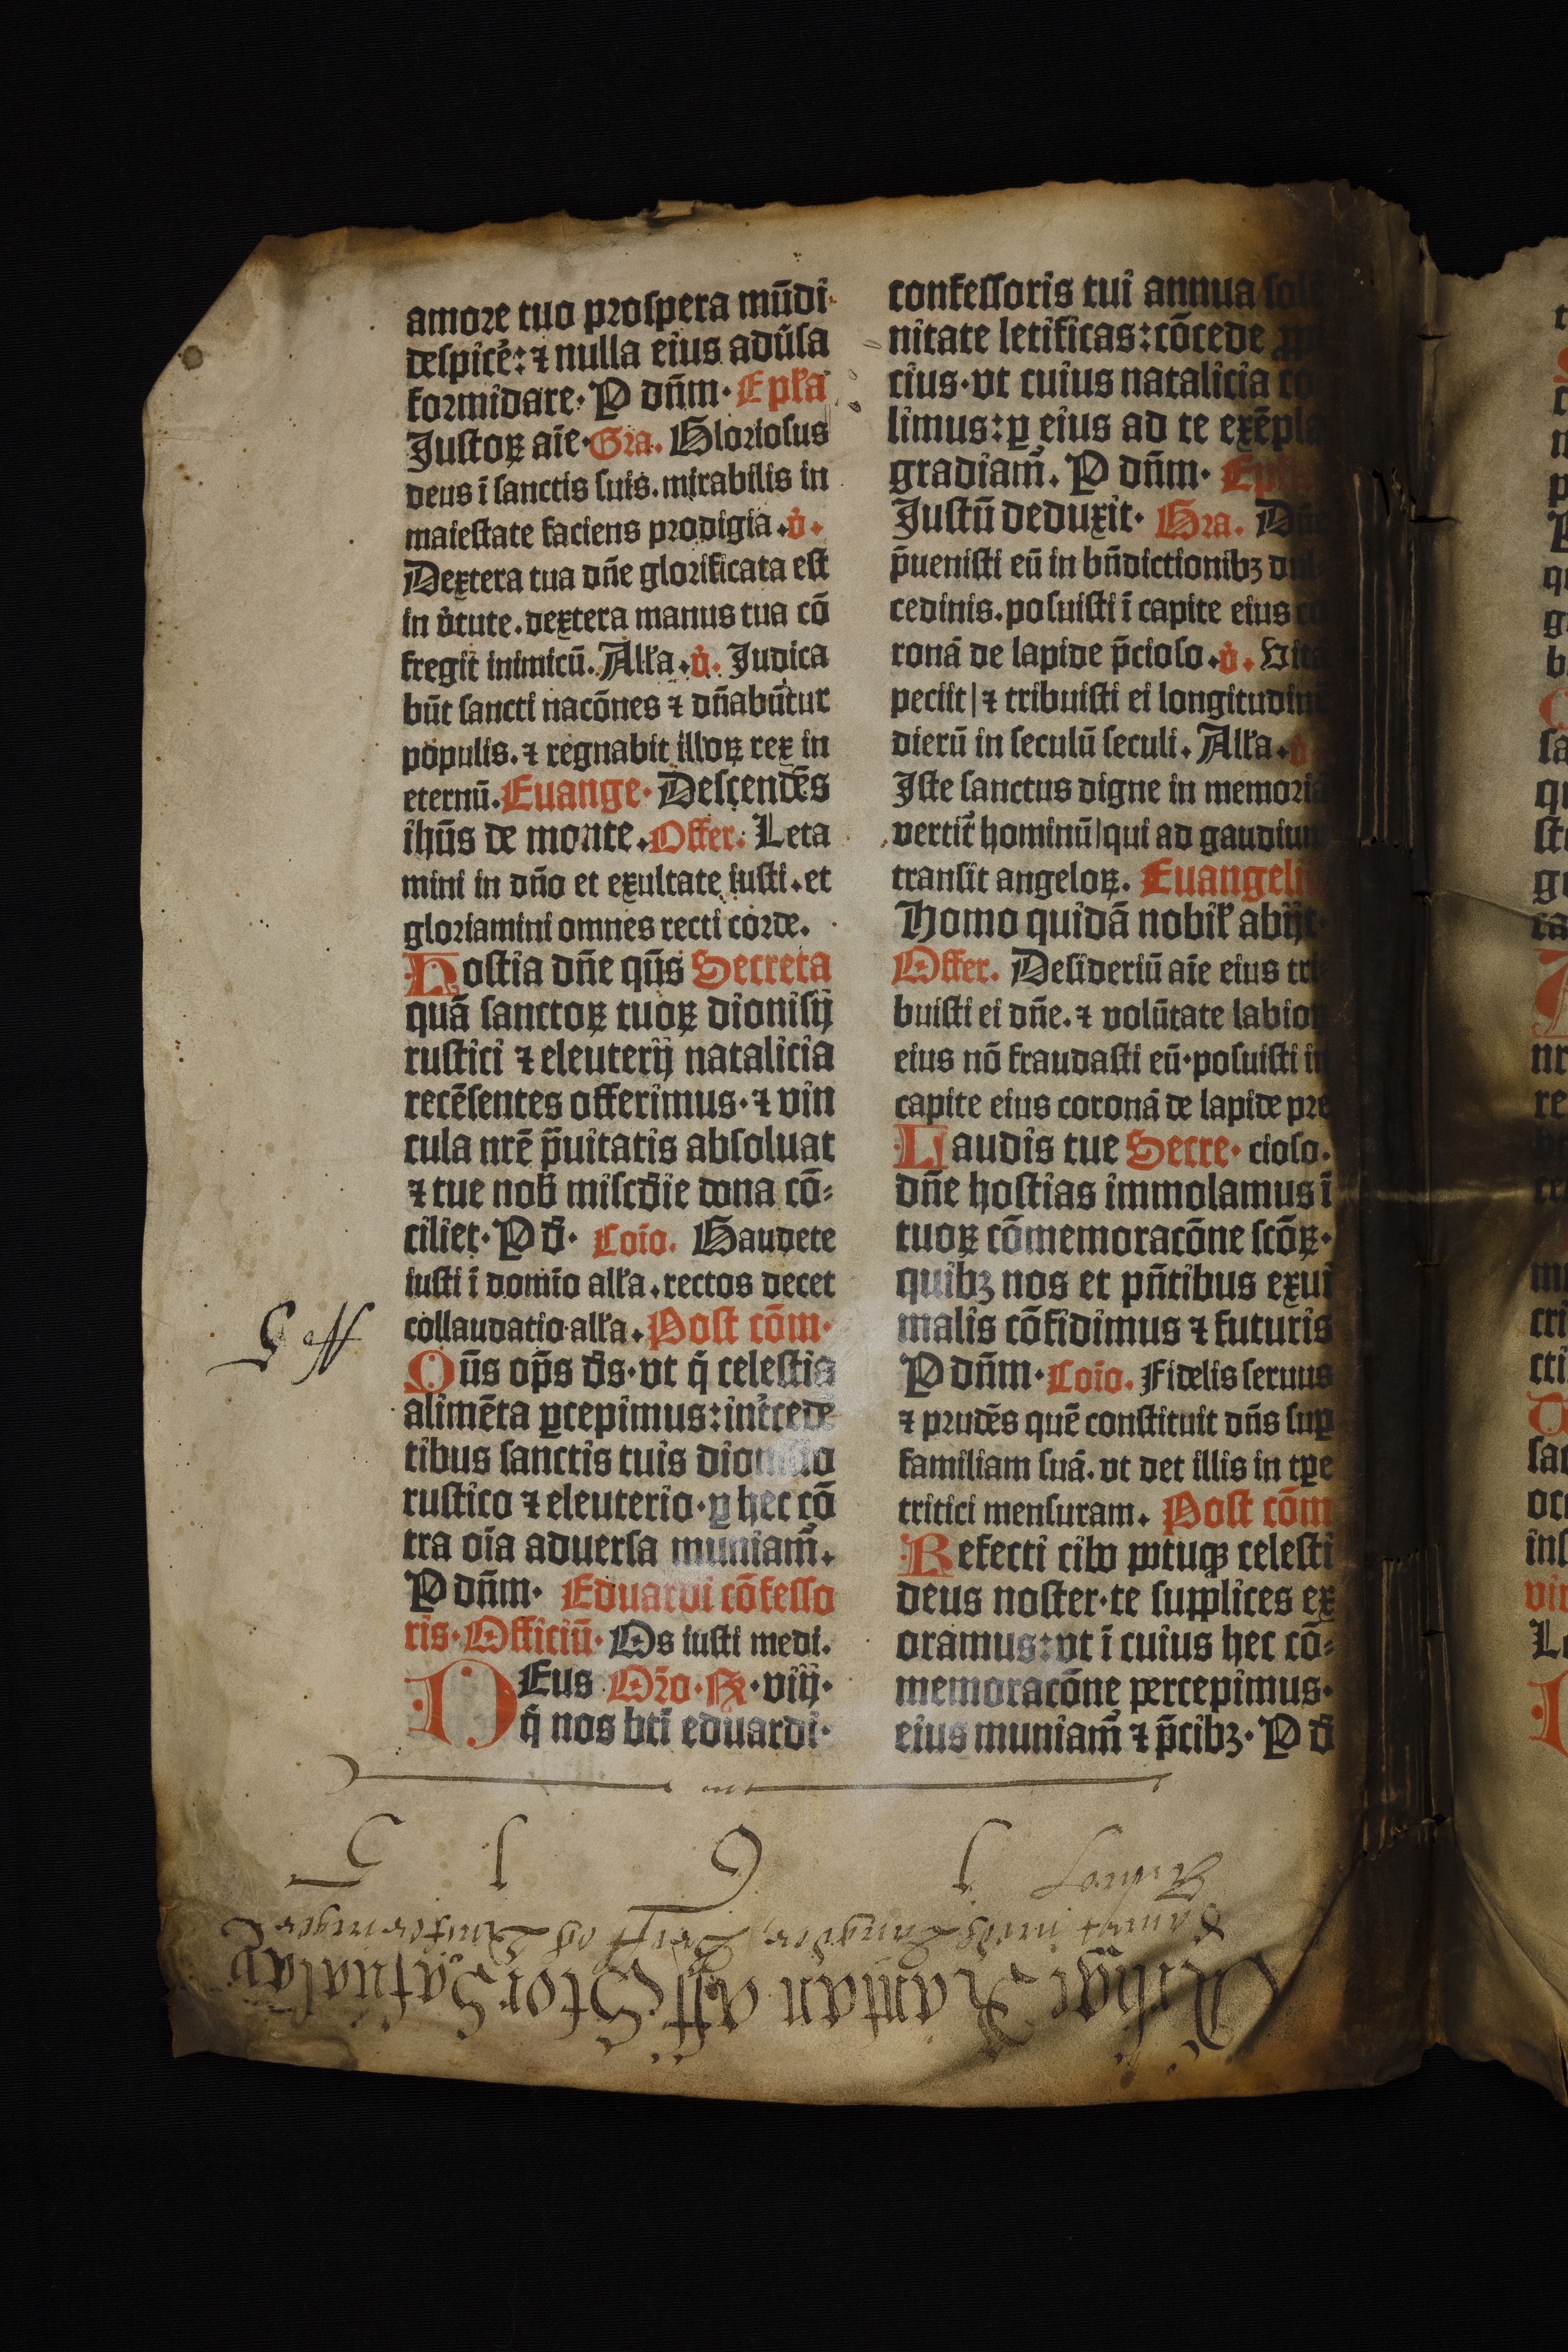 amore tuo prospera mūdi
despicẽ: ⁊ nulla eius adũsa
formidare. P dñm. Epľa
Justoꝝ aīe. Gra. Gloriosus
deus ī sanctis suis. mirabilis in
maiestate faciens prodigia. ṽ.
Dextera tua dñe glorificata est
in ṽtute. dextera manus tua cō
fregit inimicū. Alľa. ṽ. Judica
būt sancti nacōnes ⁊ dñabūtur
populis. ⁊ regnabit illoꝝ rex in
eternū. Euange. Descendēs
ihūs de monte. Offer. Leta
mini in dño et exultate iusti. et
gloriamini omnes recti corde.
Hostia dñe qūs Secreta
quā sanctoꝝ tuoꝝ dionisij
rustici ⁊ eleuterij natalicia
recēsentes offerimus. ⁊ vin
cula nrē p̃uitatis absoluat
⁊ tue nob̃ misc̃die dona cō-
ciliet. P d̃. Coīo. Gaudete
iusti ī domīo alľa. rectos decet
collaudatio alľa. Post cōm.
Qūs op̄s d̃s. vt q̃ celestia
alimēta ꝑcepimus: int̃cedē
tibus sanctis tuis dionisio
rustico ⁊ eleuterio. ꝑ hec cō
tra oīa aduersa muniam̃.
P dñm. Eduardi cōfesso
ris. Officiū. Os iusti medi.
DEus Oro. R. viij.
q̃ nos bti eduardi.
confessoris tui annua
nitate letificas: cōcede
cius. vt cuius natalicia co
limus: ꝑ eius ad te exēpla
gradiam̃. P dñm.
Justū deduxit. Gra. Dñe
p̃uenisti eū in bñdictionibꝫ dul
cedinis. posuisti ī capite eius co
ronā de lapide p̃cioso. ṽ. Vitā
peciit | ⁊ tribuisti ei longitudinē
dierū in seculū seculi. Alľa.
Iste sanctus digne in memoriā
vertit̃ hominū | qui ad gaudium
transit angeloꝝ. Euangeli
Homo quidā nobiľ abijt.
Offer. Desideriū aīe eius tri
buisti ei dñe. ⁊ volūtate labioꝝ
eius nō fraudasti eū. posuisti in
capite eius coronā de lapide pre
Laudis tue Secre. cioso.
dñe hostias immolamus ī
tuoꝝ cōmemoracōne scōꝝ.
quibꝫ nos et pñtibus exui
malis cōfidimus ⁊ futuris
P dñm. Coīo. Fidelis seruus
⁊ prudēs quē constituit dñs suꝑ
familiam suā. vt det illis in tꝑe
tritici mensuram. Post cōm
Refecti cibo potuqꝫ celesti
deus noster. te supplices ex
oramus: vt ī cuius hec cō-
memoracōne percepimus.
eius muniam̃ ⁊ p̃cibꝫ. P d̃
1 6 1 5